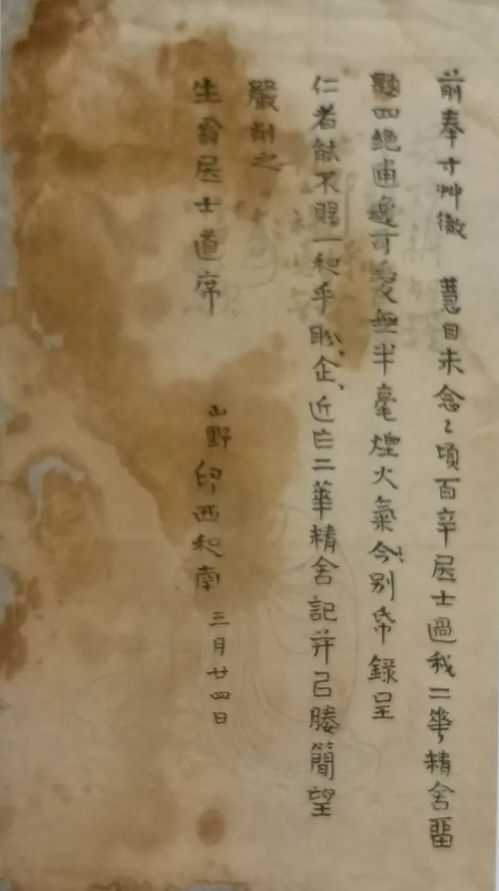 前奉寸艸徹　慧目未念〻頃百辛居士過我二華精舍畱
題四絶甫邊可愛無半毫煙火氣今別帋錄呈
仁者能不賜一和乎盻企近亡二華精舍記并已賸簡望
嚴削之
生翁居士道席
山野印西和南 三月廿四日